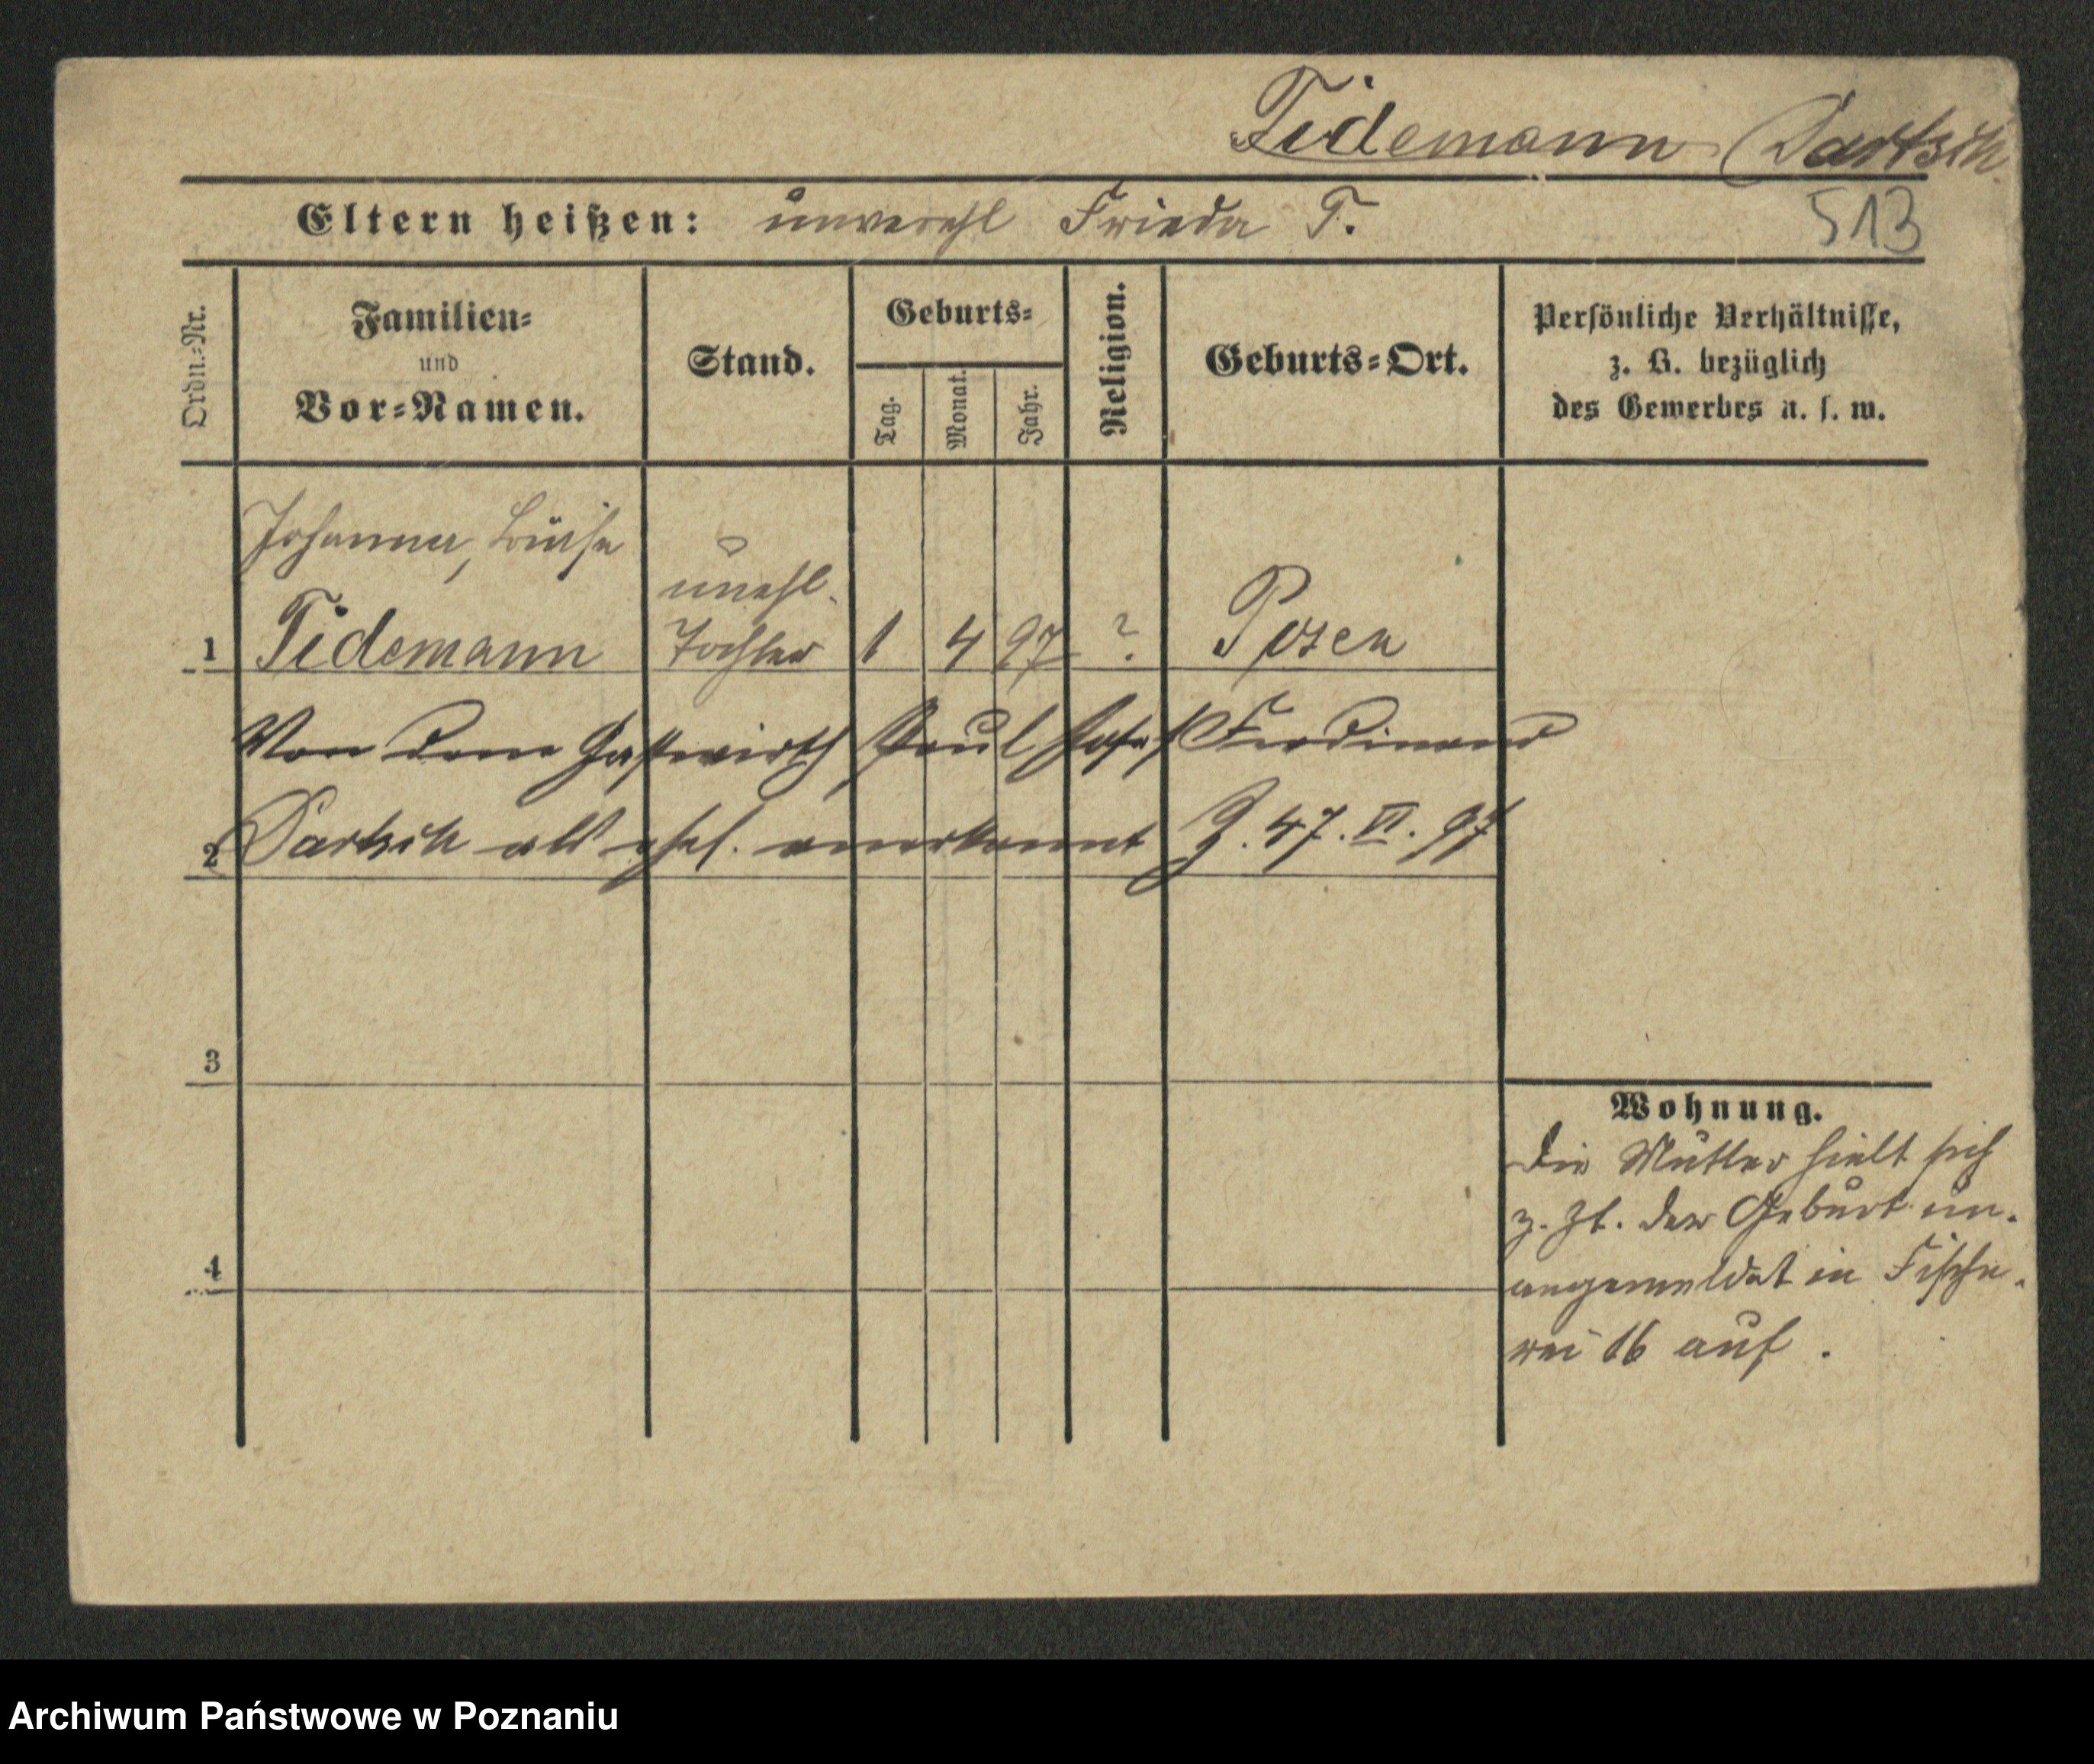 Tidemann (Dartsch
Eltern heißen: unverehl Frieda T.
513
Ordn.=Nr.
Familien=
und
Vor=Namen.
Stand.
Geburts=
Tag.
Monat.
Jahr.
Religion.
Geburts=Ort.
Persönliche Verhältnisse,
z. B. bezüglich
des Gewerbes u. s. w.
Johanna, Luise
unehl.
1 Tidemann Tochter 1 4 97 ? Posen
Von dem Gastwirth Paul Josef Ferdinand
2 Dartsch als ehel. anerkannt J. 47. VI. 97
3
4
Wohnung.
Die Mutter hielt sich
z. Zt. der Geburt un-
angemeldet in Fische-
rei 16 auf.
Archiwum Państwowe w Poznaniu